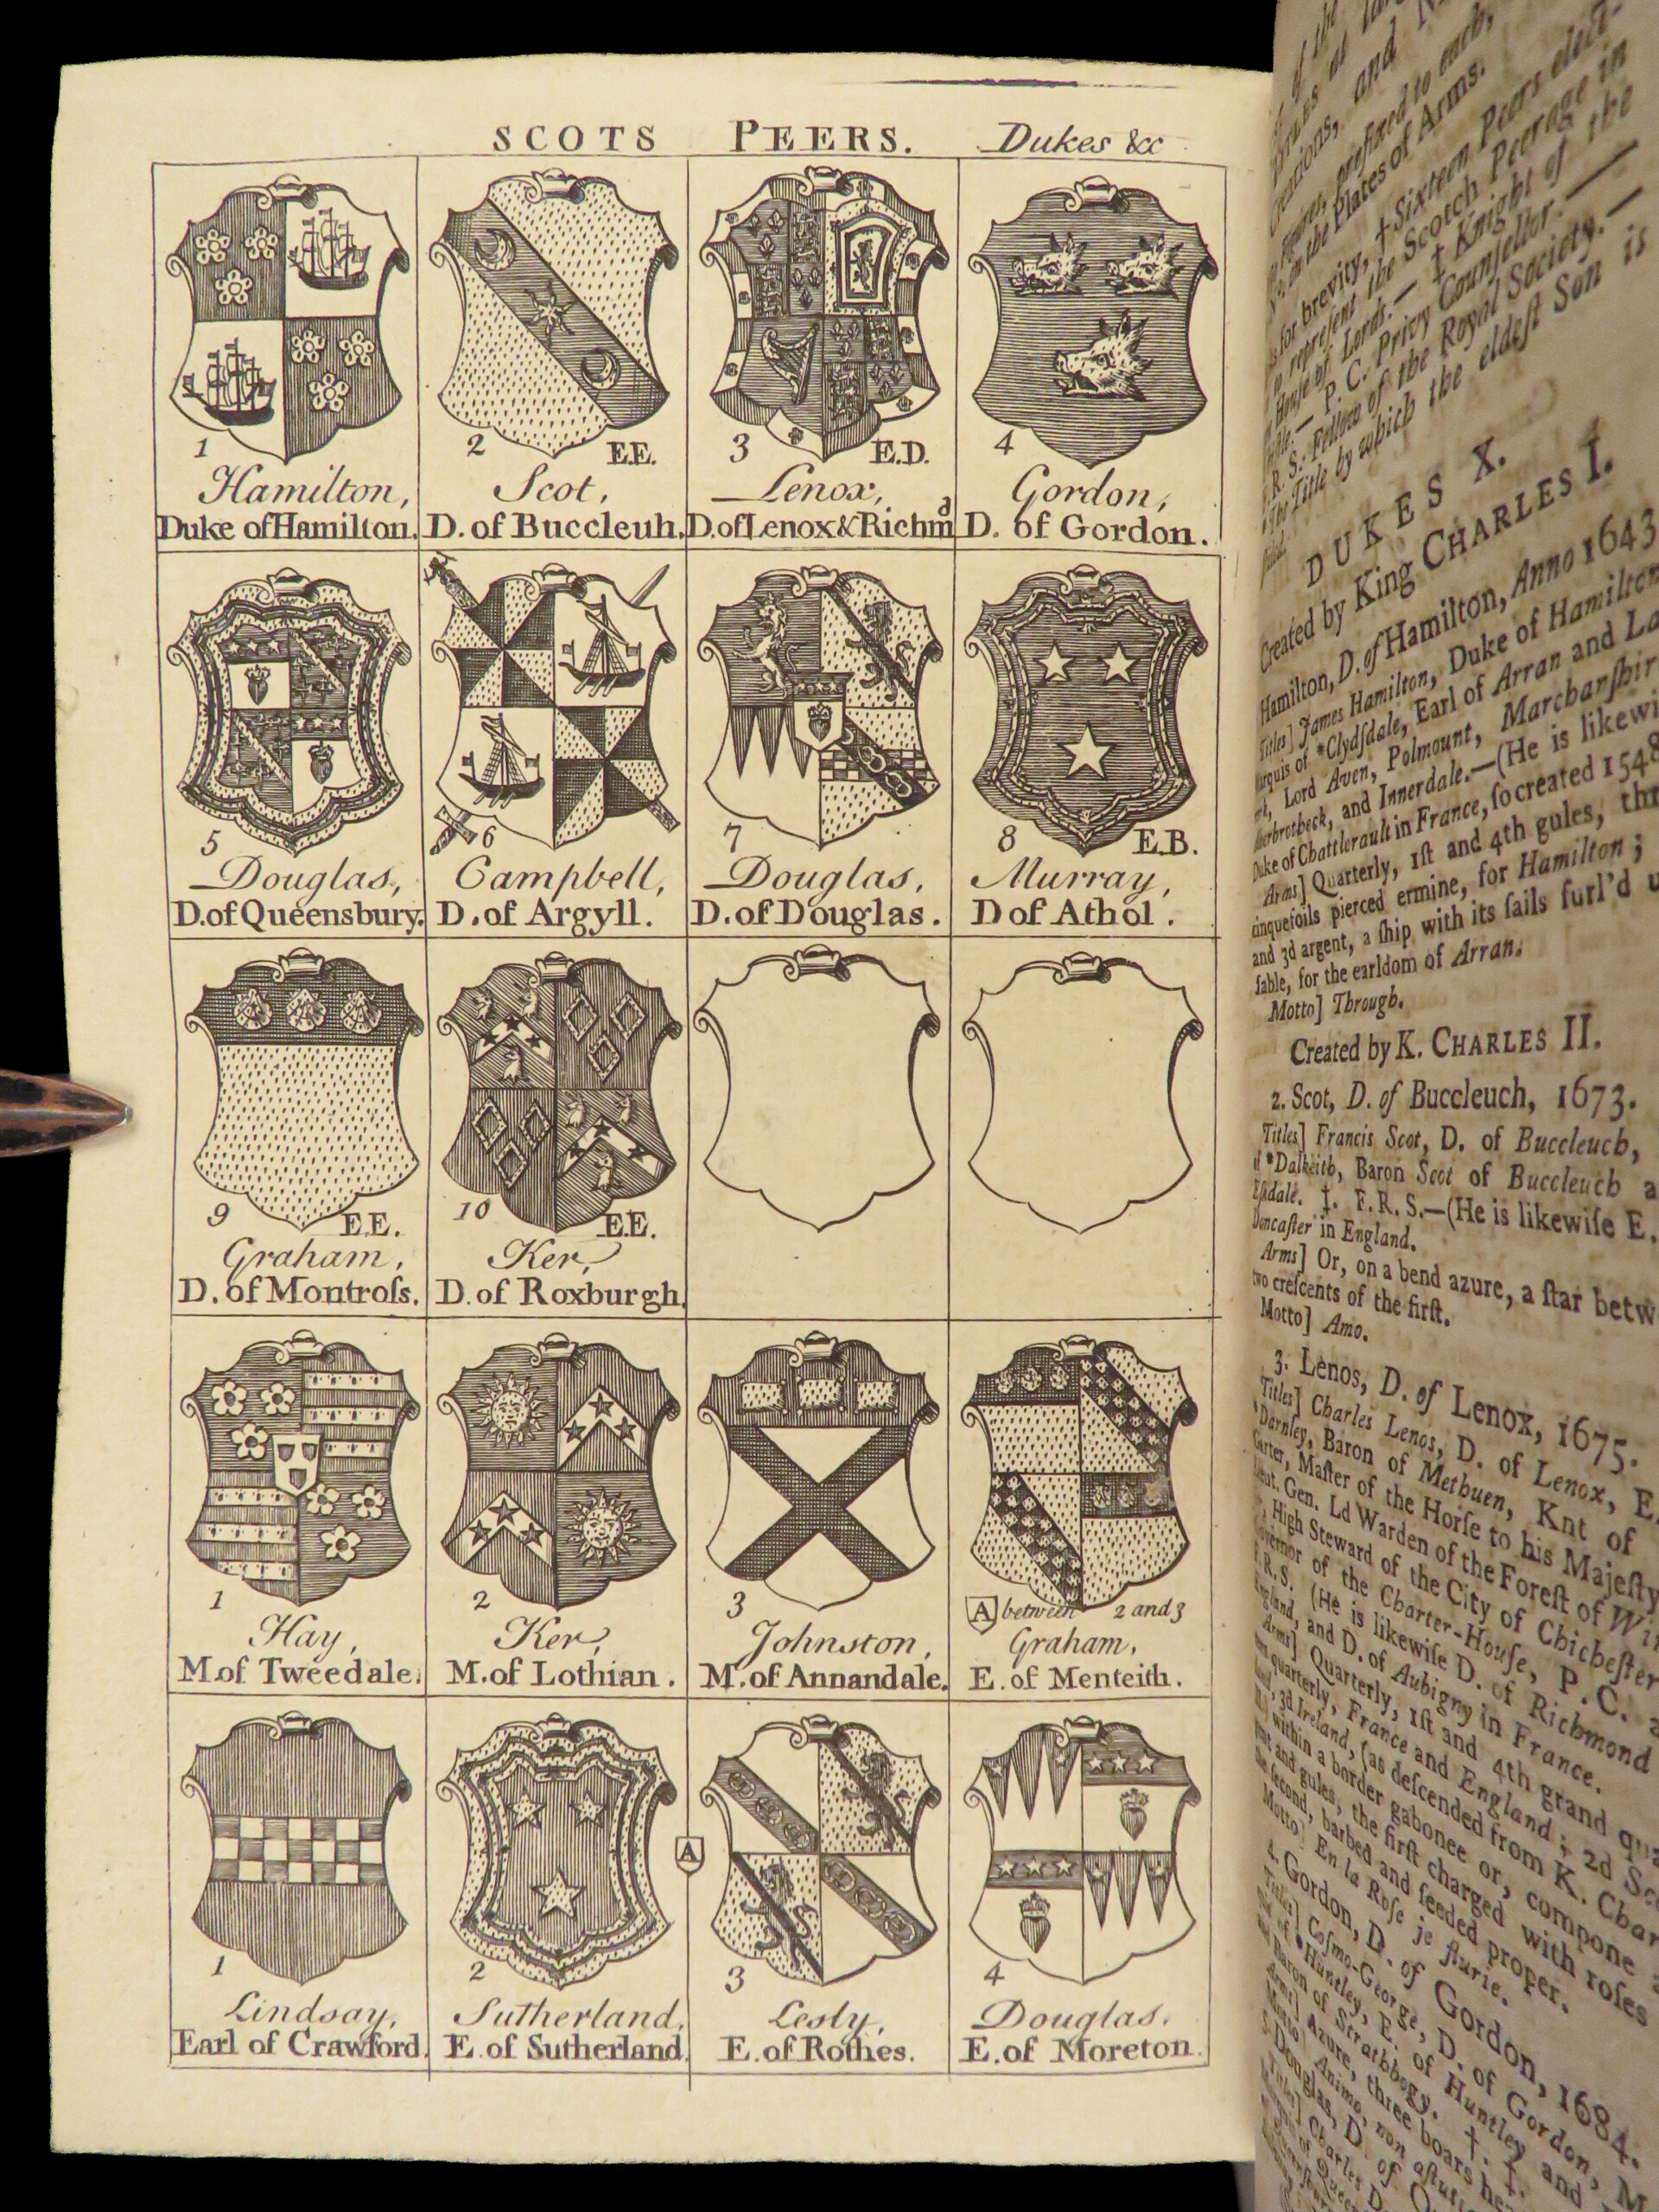 SCOTS PEERS. Dukes &c
1
Hamilton,
Duke of Hamilton.
2 EE.
Scot,
D. of Buccleuh.
3 E.D.
Lenox,
D. of Lenox & Richmd
4
Gordon,
D. of Gordon.
5
Douglas,
D. of Queensbury.
6
Campbell,
D. of Argyll.
7
Douglas,
D. of Douglas.
8 E.B.
Murray,
D of Athol.
9 EE.
Graham,
D. of Montroſs.
10 EE.
Ker,
D. of Roxburgh.
1
Hay,
M. of Tweedale.
2
Ker,
M. of Lothian.
3
Johnston,
M. of Annandale.
A between 2 and 3
Graham,
E. of Menteith.
1
Lindsay,
Earl of Crawford.
2
Sutherland,
E. of Sutherland
A
3
Lesly,
E. of Rothes.
4
Douglas,
E. of Moreton.
of the
and
prefixed to each,
on the Plates of Arms.
for brevity, † Sixteen Peers elect-
to repreſent the Scotch Peerage in
Houſe of Lords.— ‡ Knight of the
P. C. Privy Counſellor.—
R. S. Fellow of the Royal Society.—
The Title by which the eldeſt Son is
DUKES X.
Created by King CHARLES I.
Hamilton, D. of Hamilton, Anno 1643
Titles] James Hamilton, Duke of Hamilton
Marquis of *Clydſdale, Earl of Arran and
Lord Aven, Polmount, Marchanſhir
and Innerdale.—(He is likewi
Duke of Chattlerault in France, ſo created 1548
Arms] Quarterly, 1ſt and 4th gules, thr
cinquefoils pierced ermine, for Hamilton;
and 3d argent, a ſhip with its ſails furl'd u
ſable, for the earldom of Arran.
Motto] Through.
Created by K. CHARLES II.
2. Scot, D. of Buccleuch, 1673.
Titles] Francis Scot, D. of Buccleuch,
of *Dalkeith, Baron Scot of Buccleuch a
Eſkdale. ‡. F. R. S.—(He is likewiſe E.
Doncaſter in England.
Arms] Or, on a bend azure, a ſtar betw
two creſcents of the firſt.
Motto] Amo.
3. Lenos, D. of Lenox, 1675.
Titles] Charles Lenos, D. of Lenox, E.
*Darnley, Baron of Methuen, Knt of
Garter, Maſter of the Horſe to his Majeſty
Lieut. Gen. Ld Warden of the Foreſt of Wi
High Steward of the City of Chicheſter
Governor of the Charter-Houſe, P. C. a
F. R. S. (He is likewiſe D. of Richmond
England, and D. of Aubigny in France.
Arms] Quarterly, 1ſt and 4th grand qua
quarterly, France and England; 2d Sco
3d Ireland, (as deſcended from K. Char
within a border gabonee or, compone
and gules, the firſt charged with roſes
the ſecond, barbed and ſeeded proper.
Motto] En la Roſe je flurie.
4. Gordon, D. of Gordon, 1684.
Titles] Coſmo-George, D. of Gordon, M
of *Huntley, E. of Huntley and
Baron of Strathbogy. †. ‡.
Arms] Azure, three boars he
Motto] Animo, non aſtuti
5. Douglas, D. of Q
Titles] Charles D